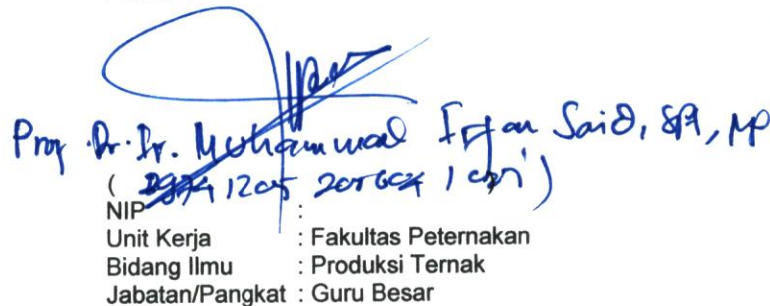 Prof. Dr. Ir. Muhammad Irfan Said, SPt, MP
( 1205
NIP :
Unit Kerja : Fakultas Peternakan
Bidang Ilmu : Produksi Ternak
Jabatan/Pangkat : Guru Besar